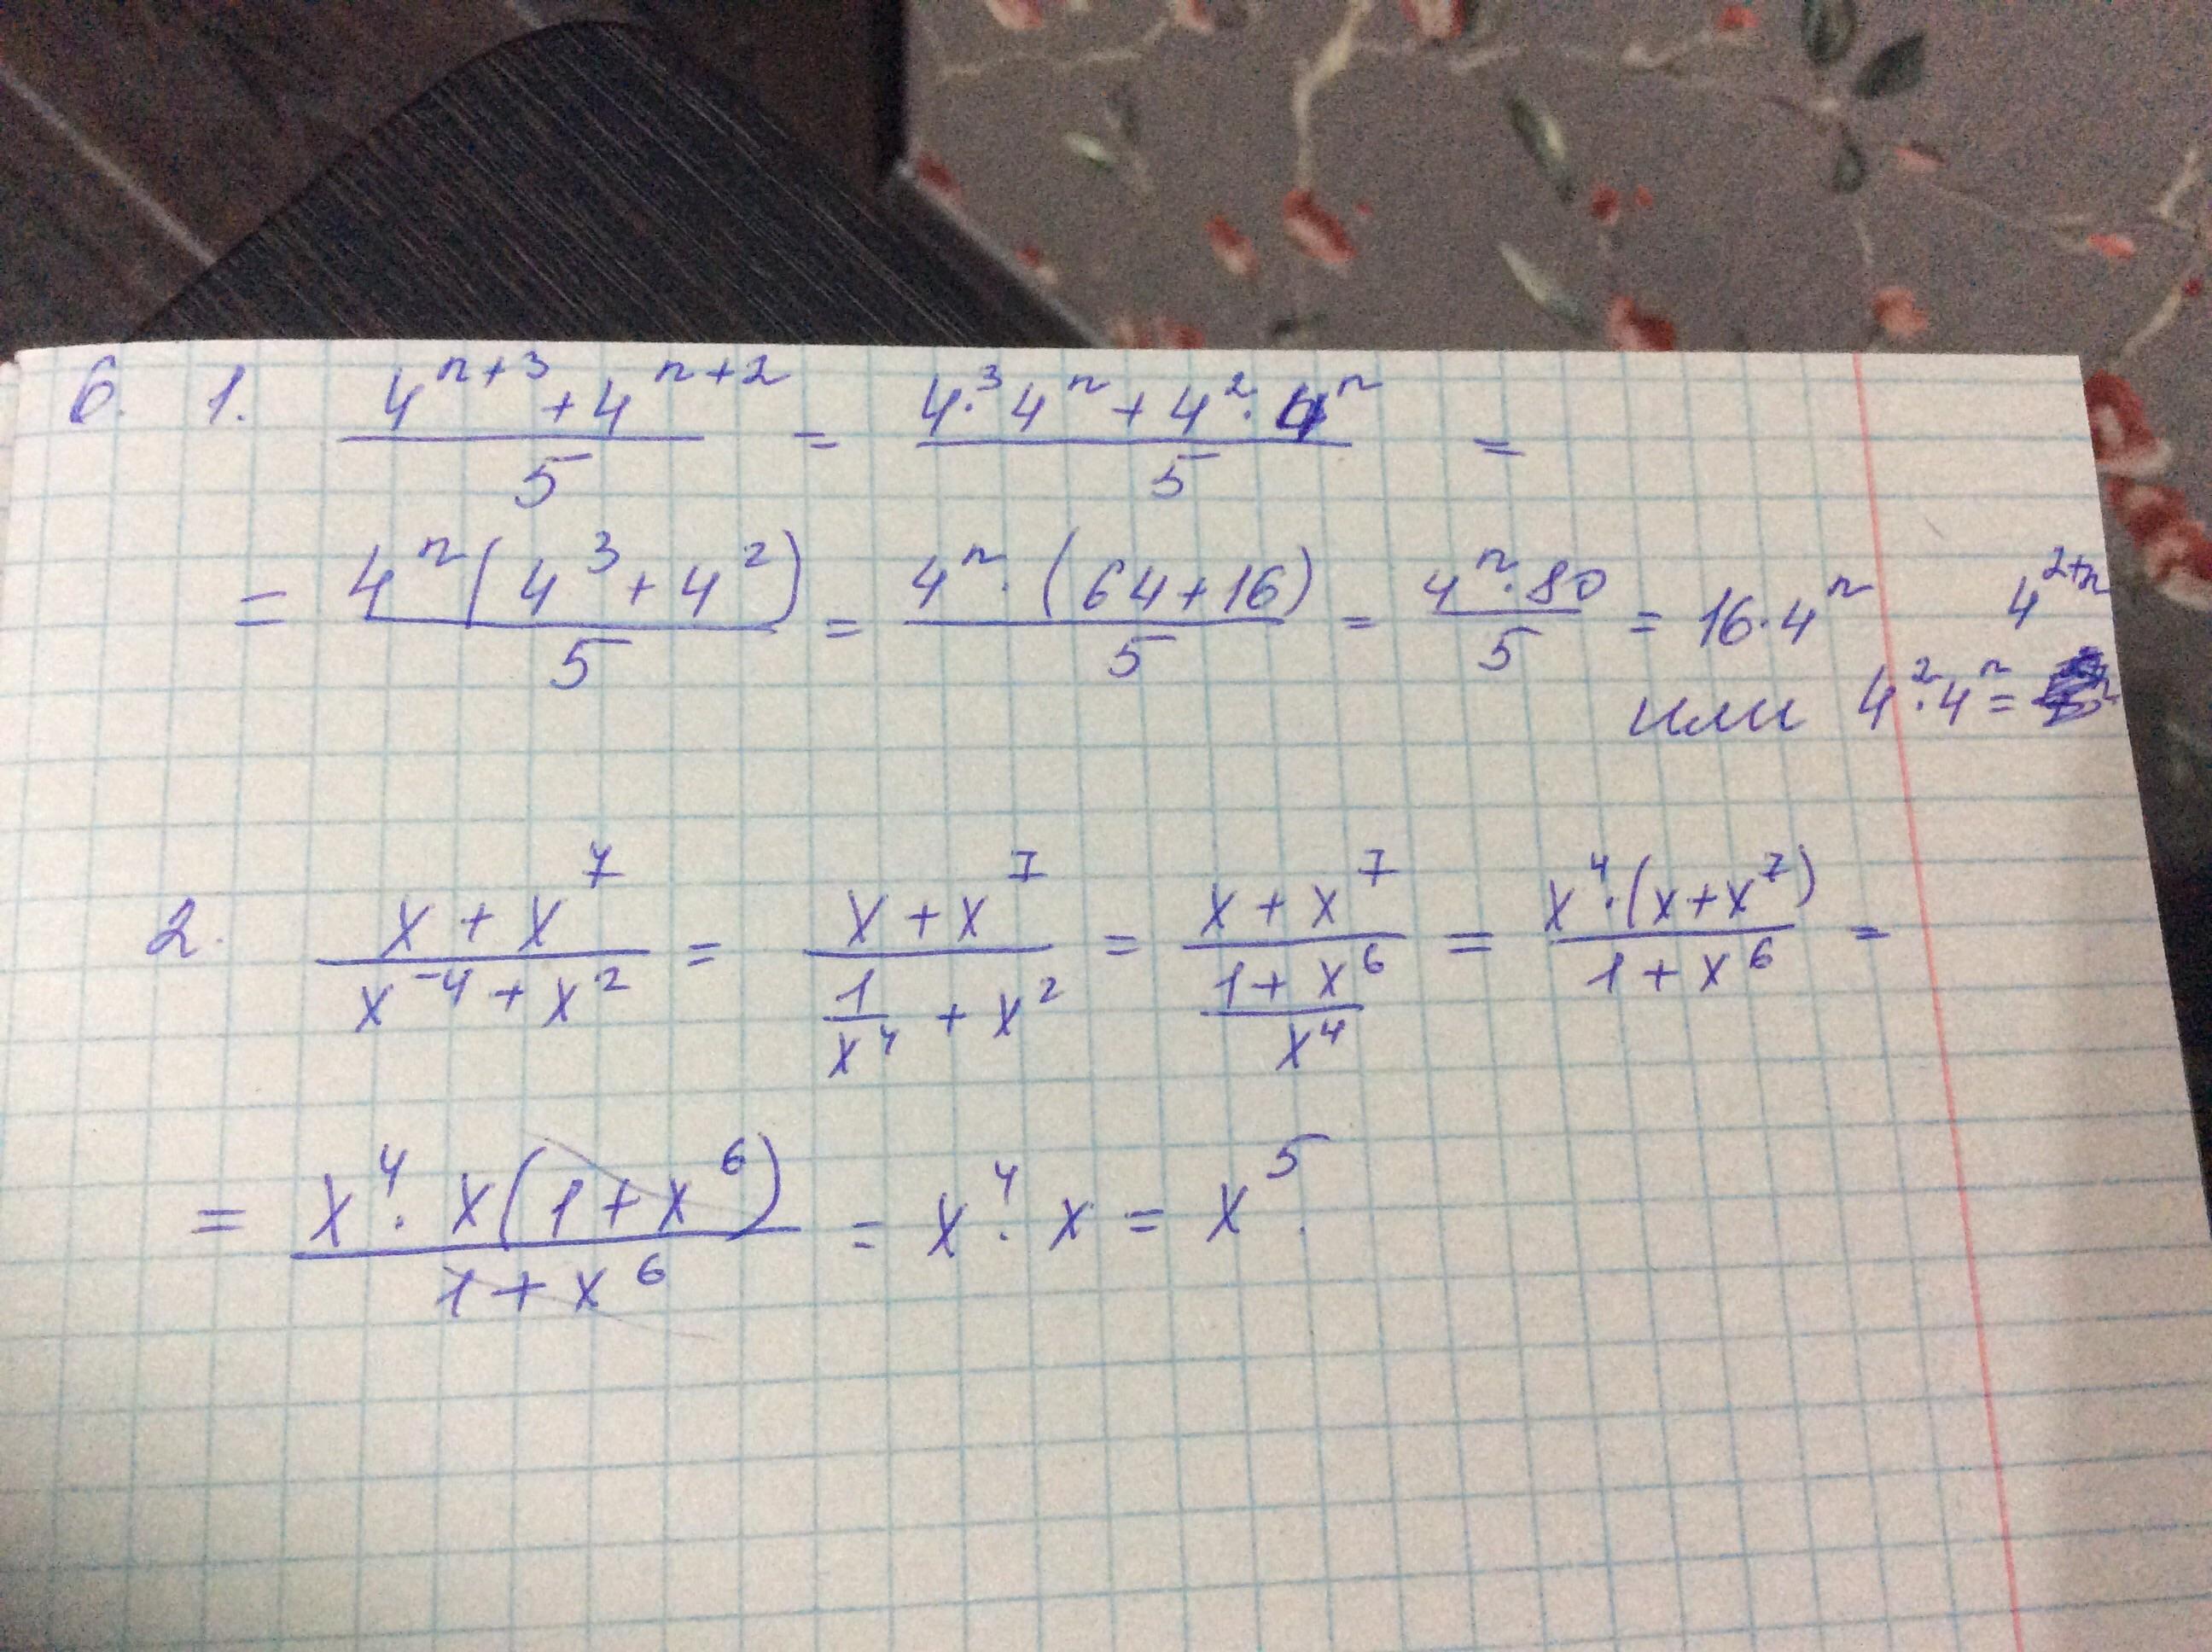 6. 1. \frac{4^{n+3}+4^{n+2}}{5} = \frac{4^3·4^n+4^2·4^n}{5} =
= \frac{4^n(4^3+4^2)}{5} = \frac{4^n·(64+16)}{5} = \frac{4^n·80}{5} = 16·4^n
или 4^2·4^n = 4^{2+n}
2. \frac{x+x^7}{x^{-4}+x^2} = \frac{x+x^7}{\frac{1}{x^4}+x^2} = \frac{x+x^7}{\frac{1+x^6}{x^4}} = \frac{x^4·(x+x^7)}{1+x^6} =
= \frac{x^4·x(1+x^6)}{1+x^6} = x^4·x = x^5.